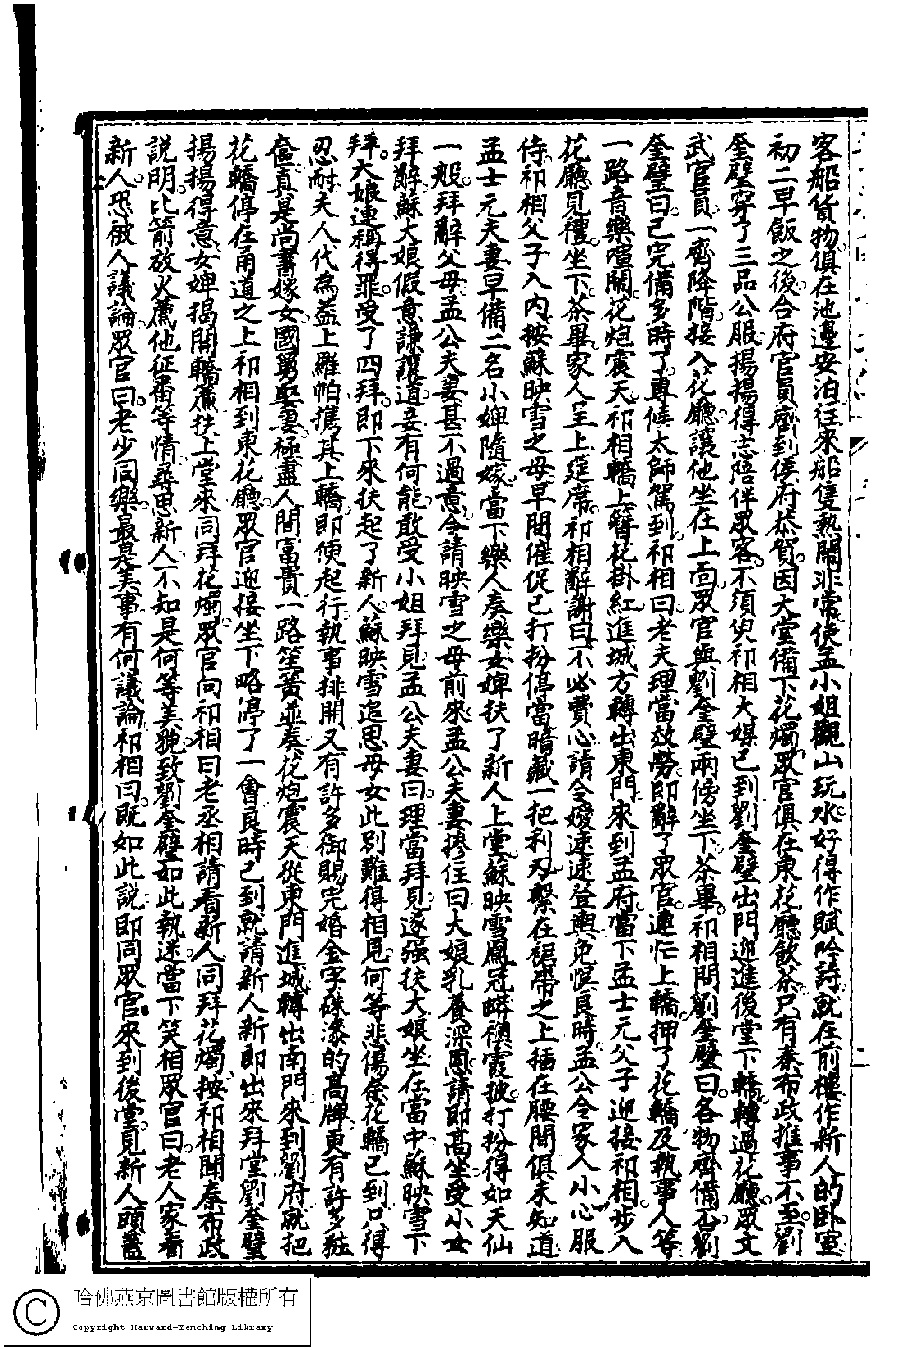 客船貨物俱在池邊安泊往來船隻熱鬧非常使孟小姐觀山玩水好得作賦吟詩就在前樓作新人的卧室
初二早飯之後合府官員齊到侯府恭賀因大堂備下花燭眾官俱在東花廳飲茶只有秦布政推事不至劉
奎壁穿了三品公服揚揚得志陪伴眾客不須臾祁相大媒已到劉奎壁出門迎進後堂下轎轉過花廳眾文
武官員一齊降階接入花廳讓他坐在上面眾官與劉奎壁兩傍坐下茶畢祁相問劉奎壁曰各物齊備否劉
奎壁曰已完備多時了專候太師駕到祁相曰老夫理當效勞即辭了眾官連忙上轎押了花轎及執事人等
一路音樂喧鬧花炮震天祁相轎上簪花掛紅進城方轉出東門來到孟府當下孟士元父子迎接祁相步入
花廳見禮坐下茶畢家人呈上筵席祁相辭謝曰不必費心請令嬡速速登輿免悞良時孟公令家人小心服
侍祁相父子入內按蘇映雪之母早間催促已打扮停當暗藏一把利刃繫在裙帶之上插在腰間俱未知道
孟士元夫妻早備二名小婢隨嫁當下樂人奏樂女婢扶了新人上堂蘇映雪鳳冠麟襖霞披打扮得如天仙
一般拜辭父母孟公夫妻甚不過意令請映雪之母前來孟公夫妻攙住曰大娘乳養深恩請即高坐受小女
拜辭蘇大娘假意謙讓道妾有何能敢受小姐拜見孟公夫妻曰理當拜見遂強扶大娘坐在當中蘇映雪下
拜大娘連稱得罪受了四拜即下來扶起了新人蘇映雪追思母女此別難得相見何等悲傷奈花轎已到只得
忍耐夫人代為蓋上羅帕攜其上轎即便起行執事排開又有許多御賜完婚金字硃漆的高牌更有許多粧
奩真是尚書嫁女國舅娶妻極盡人間富貴一路笙簧並奏花炮震天從東門進城轉出南門來到劉府就把
花轎停在甬道之上祁相到東花廳眾官迎接坐下略停了一會良時已到就請新人新即出來拜堂劉奎壁
揚揚得意女婢揭開轎簾扶上堂來同拜花燭眾官向祁相曰老丞相請看新人同拜花燭按祁相聞秦布政
說明比箭放火薦他征番等情尋思新人不知是何等美貌致劉奎壁如此執迷當下笑相眾官曰老人家看
新人恐被人議論眾官曰老少同樂最是美事有何議論祁相曰既如此說即同眾官來到後堂見新人頭蓋
哈佛燕京圖書館版權所有
Copyright Harvard-Yenching Library